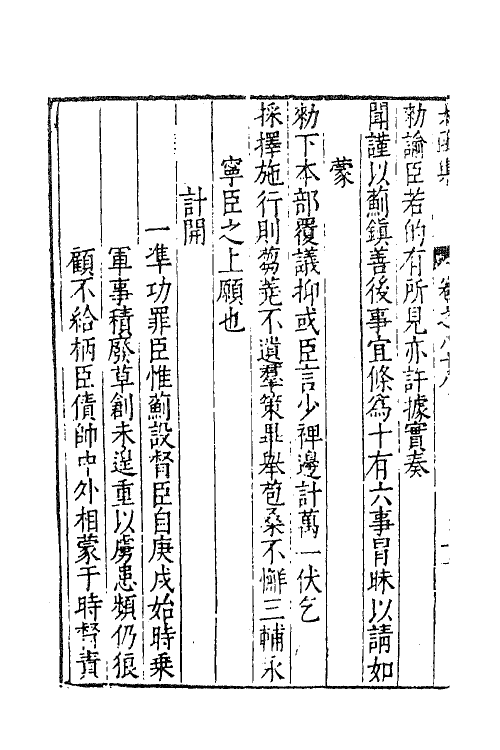 勑諭臣若的有所見亦許據實奏
聞謹以薊鎮善後事宜條爲十有六事冐昧以請如
蒙
勑下本部覆議抑或臣言少裨邊計萬一伏乞
採擇施行則芻蕘不遺羣策畢舉苞桑不懈三輔永
寧臣之上願也
計開
一凖功罪臣惟薊設督臣自庚戌始時乗
軍事積廢草創未遑重以虜患頻仍狼
顧不給柄臣債帥中外相蒙于時督責